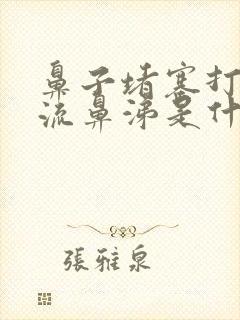 鼻子堵塞打
流鼻涕是什
張雅泉